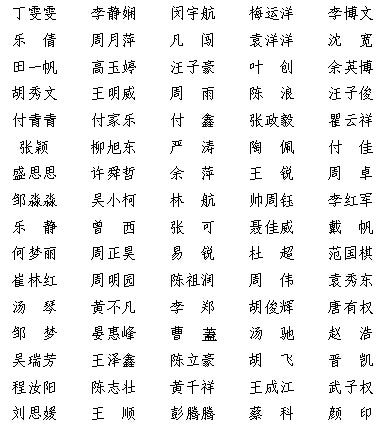 丁雯雯 李静娴 闵宇航 梅运洋 李博文
乐 倩 周月萍 凡 闯 袁洋洋 沈 宽
田一帆 高玉婷 汪子豪 叶 创 余英博
胡秀文 王明威 周 雨 陈 浪 汪子俊
付青青 付家乐 付 鑫 张政毅 瞿云祥
张颖 柳旭东 严 涛 陶 佩 付 佳
盛思思 许舜哲 余 萍 王 锐 周 卓
邹淼淼 吴小柯 林 航 帅周钰 李红军
乐 静 曾 西 张 可 聂佳威 戴 帆
何梦丽 周正昊 易 锐 杜 超 范国棋
崔林红 周明园 陈祖润 周 伟 袁秀东
汤 琴 黄不凡 李 郑 胡俊辉 唐有权
邹 梦 晏惠峰 曹 汤 驰 赵 浩
吴瑞芳 王泽鑫 陈立豪 胡 飞 晋 凯
程汝阳 陈志壮 黄千祥 王成江 武子权
刘思媛 王 顺 彭腾腾 蔡 科 颜 印